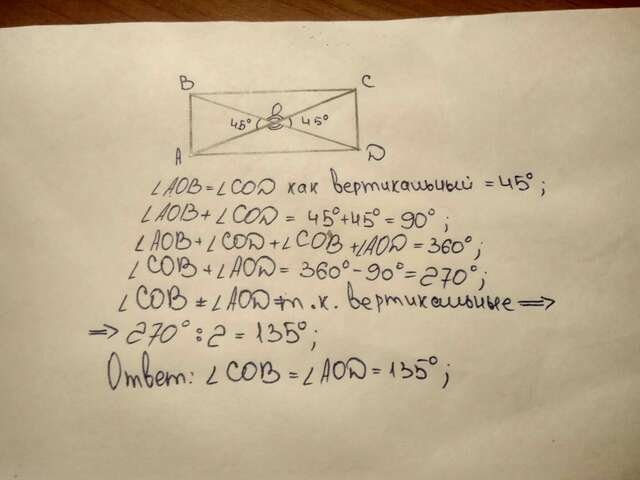 B C
O
45° 45°
A D
∠AOB = ∠COD как вертикальный = 45°;
∠AOB + ∠COD = 45° + 45° = 90°;
∠AOB + ∠COD + ∠COB + ∠AOD = 360°;
∠COB + ∠AOD = 360° - 90° = 270°;
∠COB = ∠AOD т.к. вертикальные ⇒
⇒ 270° : 2 = 135°;
Ответ: ∠COB = ∠AOD = 135°;